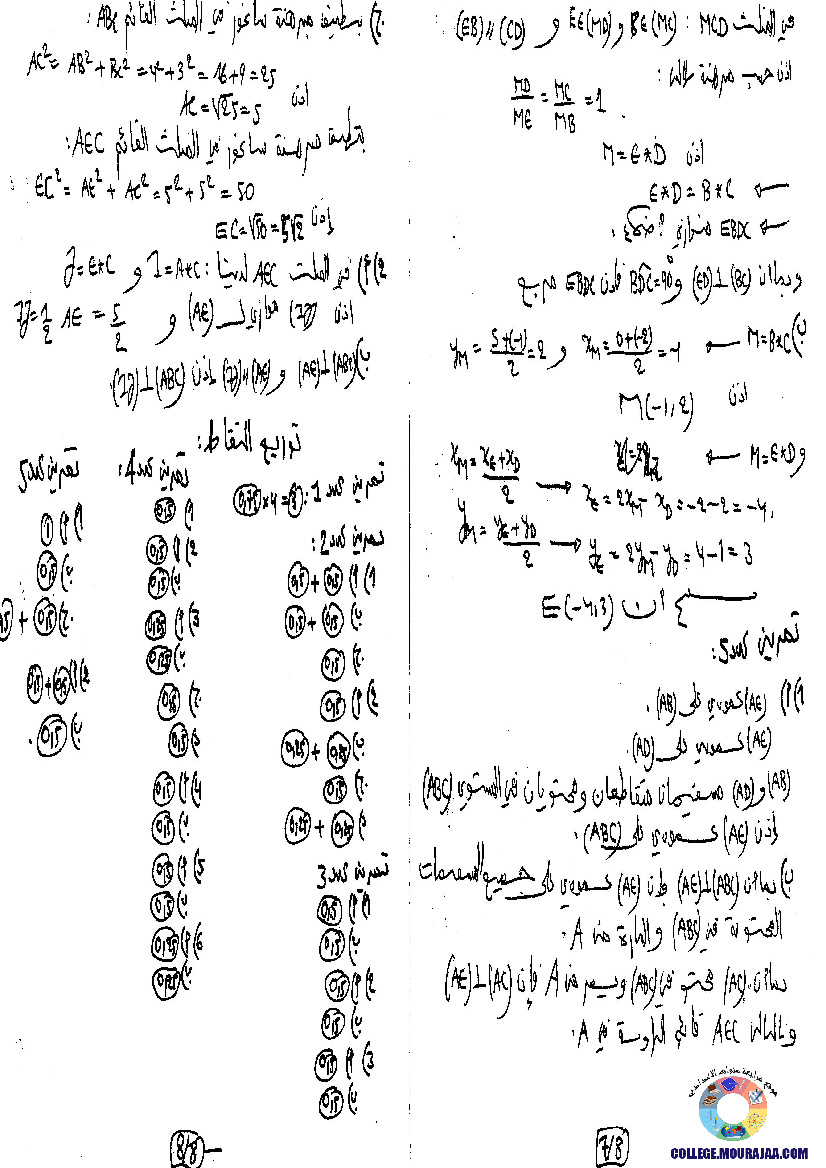 في المثلث MCD : B∈(MC) و E∈(MD) و (EB)//(CD)
اذن حسب مبرهنة طالس :
MD/ME = MC/MB = 1
اذن M=E*D
← E*D = B*C
← EBDC متوازي أضلاع .
وبما ان (BC)⊥(ED) و BDC=90° فإن EBDC مربع
ب) M=B*C ← xM = (0+(-2))/2 = -1 و yM = (5+(-1))/2 = 2
اذن M(-1,2)
و M=E*D ← xM = (xE+xD)/2 → xE = 2xM - xD = -2-2 = -4,
yM = (yE+yD)/2 → yE = 2yM - yD = 4-1 = 3
ان E(-4,3)
تمرين عدد5:
1) أ) (AE) عمودي على (AB).
(AE) عمودي على (AD).
(AB) و (AD) مستقيمان متقاطعان ومحتويان في المستوي (ABC)
إذن (AE) عمودي على (ABC).
ب) بما ان (AE)⊥(ABC) فإن (AE) عمودي على جميع المستقيمات
المحتوية في (ABC) و المارة من A.
بما ان (AC) محتو في (ABC) ويمر من A فإن (AE)⊥(AC)
وبالتالي AEC قائم الزاوية في A.
7/8
ج) بتطبيق مبرهنة بيتاغور في المثلث القائم ABC:
AC² = AB² + BC² = 4² + 3² = 16 + 9 = 25
اذن AC = √25 = 5
بتطبيق مبرهنة بيتاغور في المثلث القائم AEC:
EC² = AE² + AC² = 5² + 5² = 50
إذن EC = √50 = 5√2
2) أ) في المثلث AEC لدينا : I=A*C و J=E*C
اذن (IJ) موازي لـ (AE) و IJ = 1/2 AE = 5/2
ب) (AE)⊥(ABC) و (AE)//(IJ) إذن (IJ)⊥(ABC).
توزيع النقاط:
تمرين عدد 1 : 0,75×4=3
تمرين عدد 2:
1) أ) 0,5 + 0,5
ب) 0,5 + 0,5
ج) 0,5
2) أ) 0,5
ب) 0,25 + 0,25
ج) 0,5
د) 0,25 + 0,25
تمرين عدد 3
1) أ) 0,5
ب) 0,5
2) أ) 0,5
ب) 0,5
3) أ) 0,5
ب) 0,5
تمرين عدد 4:
1) 0,5
2) أ) 0,5
ب) 0,5
3) أ) 0,25
ب) 0,25
ج) 0,5
د) 0,5
4) أ) 0,5
ب) 0,5
5) أ) 0,5
ب) 0,5
6) أ) 0,25
ب) 0,25
تمرين عدد5
1) أ) 1
ب) 0,5
ج) 0,5 +
2) أ) 0,5 + 0,5
ب) 0,5 .
8/8
موقع مراجعة
COLLEGE.MOURAJAA.COM